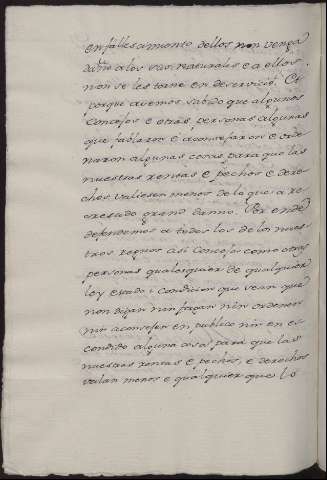 en fallesamiento dellos non venga
daño a los sus naturales e a ellos
non se les torne en deservicio. Et
porque avemos sabido que algunos
Concejos e otras personas algunas
que fablaron e aconsejaron e orde
naron algunas cosas para que las
nuestras rentas e pechos e dere
chos valiesen menos de lo que a re
cresido grand danno. Por ende
defendemos a todos los de los nues
tros regnos asi Concejos como otras
personas qualesquier de qualquier
ley estado o condicion que sean que
non digan nin fagan nin ordenen
nin aconsejen en publico nin en es
condido alguna cosa para que las
nuestras rentas e pechos, e derechos
valan menos e qualquier que lo